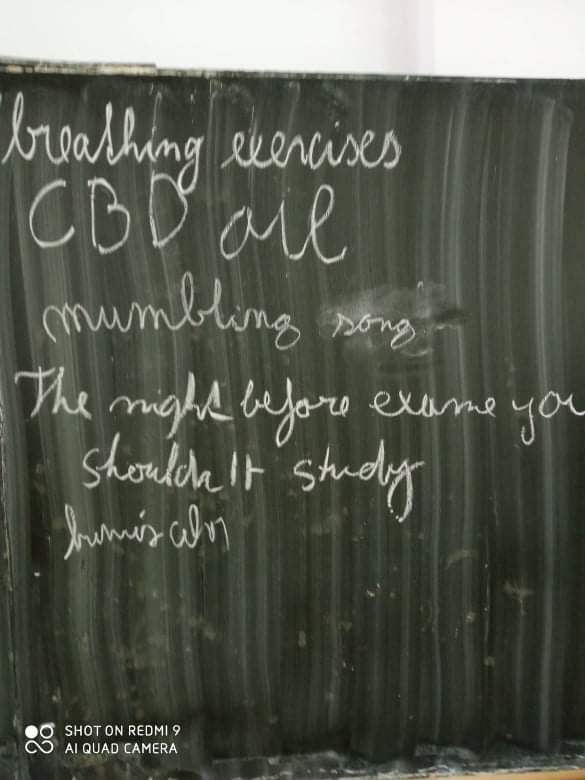 breathing exercises
CBD oil
mumbling song
The night before exame you
shouldn't study
SHOT ON REDMI 9
AI QUAD CAMERA